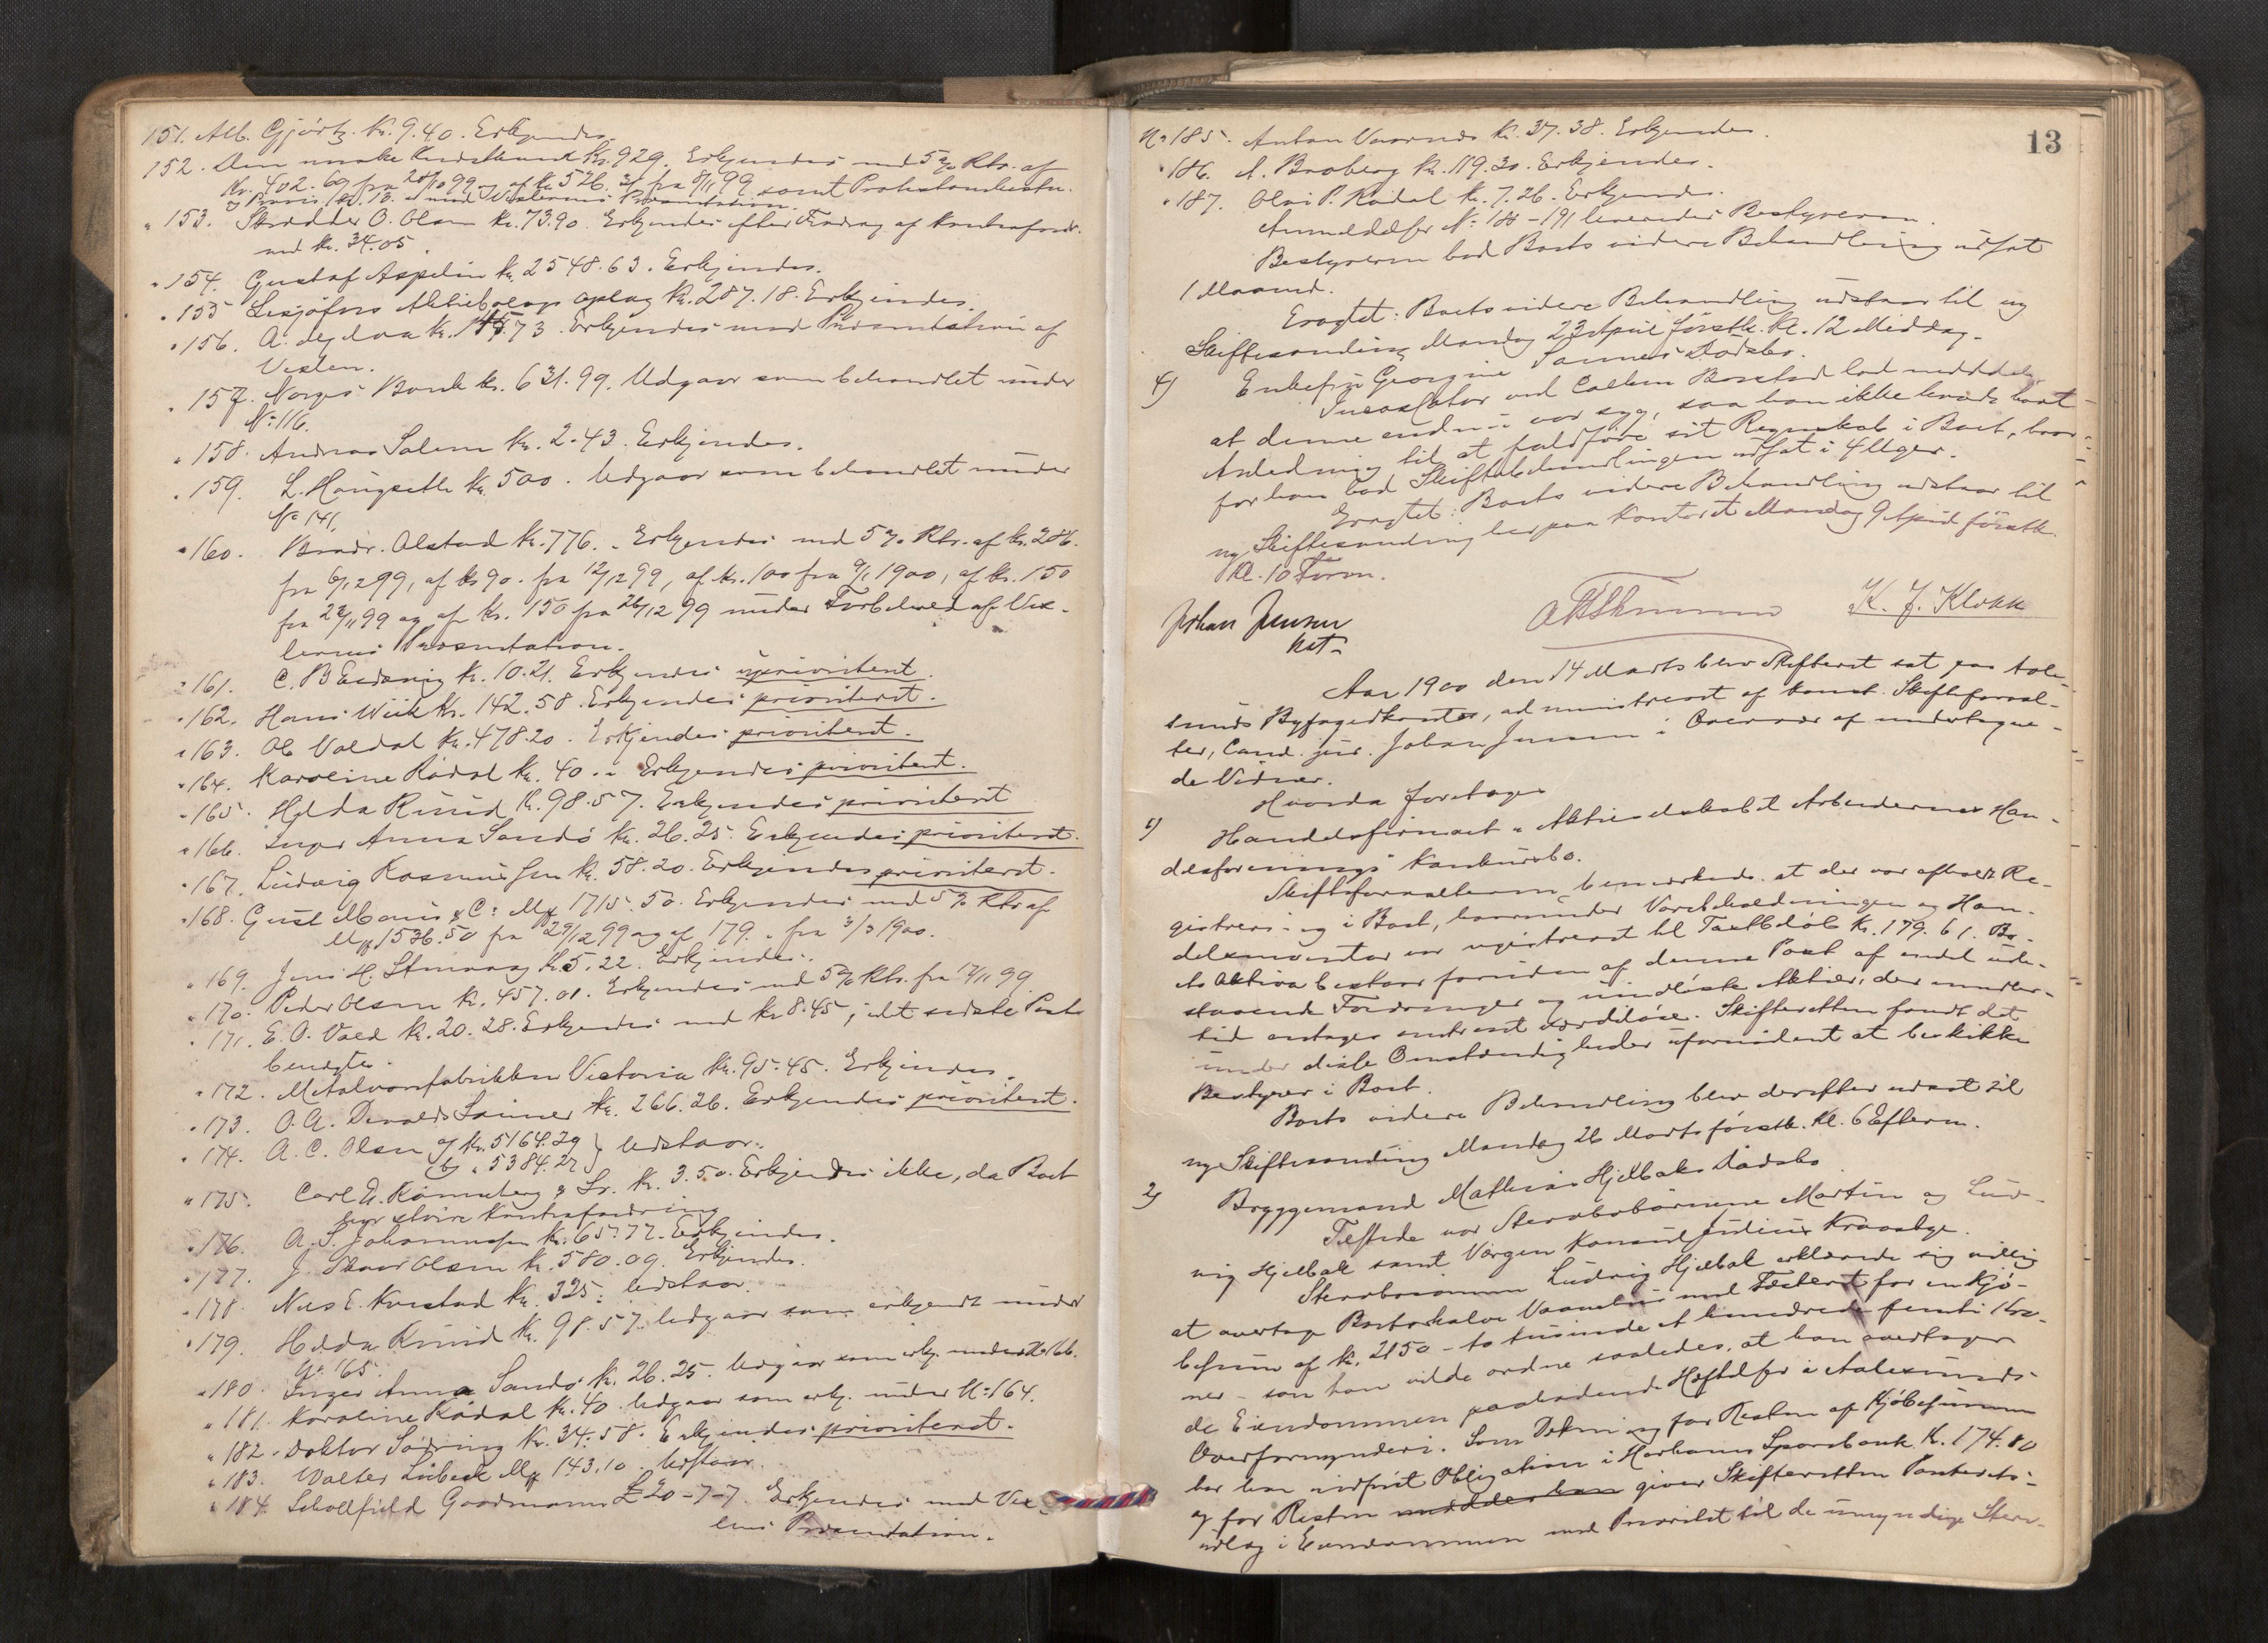 151. Alb. Gjørtz. Kr. 9.40. Erkjendes.
152. Den norske Kreditbank Kr. 929. Erkjendes med 5% Rtr. af
Kr. 402.69 fra 28/10 99 og af Kr. 526.31 fra 8/11 99 samt
og Provis. Kr. mod Vexlernes Præsentation.
" 153. Skrædder O. Olsen Kr. 73.90. Erkjendes efter Fradrag af Kontrafordr.
med Kr. 34.05.
" 154. Gustaf Aspelin Kr. 2548.63. Erkjendes.
" 155 Lesjöfors Aktiebolags oplag Kr. 287.18. Erkjendes.
" 156. A. Kr. 73. Erkjendes mod Præsentation af
Vexlen.
" 157. Norges Bank Kr. 631.99. Udgaar som behandlet under
No 116.
" 158. Andreas Salem Kr. 2.43. Erkjendes.
" 159. L. Haugseth Kr. 500. Udgaar som behandlet under
No 141.
" 160. Brødr. Alstad Kr. 776. " Erkjendes med 5% Rtr. af Kr. 286.
fra 6/12 99, af Kr 90. fra 12/12 99, af Kr. 100 fra 9/1 1900, af Kr. 150
fra 22/11 99 og af Kr. 150 fra 26/12 99 under Forbehold af Vex-
lernes Præsentation.
" 161. C. B Kr. 10.21. Erkjendes uprioritert.
" 162. Hans Wiik Kr. 142.58. Erkjendes prioriteret.
" 163. Ole Valdal Kr. 478.20. Erkjendes prioriteret.
" 164. Karoline Rødal Kr. 40. " Erkjendes prioriteret.
" 165. Hilda Ruud Kr. 98.57. Erkjendes prioriteret
" 166. Inger Anna Sandø Kr. 26.25. Erkjendes prioriteret.
" 167. Ludvig Rasmussen Kr. 58.20. Erkjendes prioriteret.
" 168. Gust Mk 1715.50. Erkjendes med 5% Rtr af
Mk 1536.50 fra 29/12 99 og af 179. " fra 3/3 1900.
" 169. Jens H. Kr. 5.22. Erkjendes.
" 170. Peder Olsen Kr. 457.01. Erkjendes med 5% Rtr. fra 17/11 99.
" 171. E. O. Kr. 20.28. Erkjendes med Kr 8.45, idet sidste Post
benegtes.
" 172. Metalvarefabrikken Victoria Kr. 95.45. Erkjendes.
" 173. O. A. Devolds Sønner Kr. 266.26. Erkjendes prioriteret.
" 174. A. C. Olsen a) Kr. 5164.29 } Udstaar.
b) " 5384.27
" 175. Carl E. Rønneberg & Sr. Kr. 3.50. Erkjendes ikke, da Boet
har større Kontrafordring
" 176. A. S. Johannessen Kr. 65.77. Erkjendes.
" 177. J. Olsen Kr. 580.09. Erkjendes.
" 178. Nils E. Kvistad Kr. 325. Udstaar.
" 179. Hilda Ruud Kr. 98.57. Udgaar som erkjendt under
No 165.
" 180. Inger Anna Sandø Kr. 26.25. Udgaar som erkj. under No 166.
" 181. Karoline Rødal Kr. 40. Udgaar som erkj. under No 164.
" 182. Doktor Sødring Kr. 34.58. Erkjendes prioriteret.
" 183. Walter Lübeck Mk 143.10. Udstaar.
" 184. Schollfield Goodmann £ 20-7-7. Erkjendes mod Vex-
lens Præsentation.
13
No 185. Anton Kr. 37.38. Erkjendes.
" 186. A. Broberg Kr. 119.30. Erkjendes.
" 187. Olai P. Rødal Kr. 7.26. Erkjendes.
Anmeldelser No 188-191 leveredes Bestyreren.
Bestyreren bad Boets videre Behandling udsat
1 Maaned.
Eragtet: Boets videre Behandling udstaar til ny
Skiftesamling Mandag 23 April førstk. Kl. 12 Middag.
4) Enkefru Georgine Sannes Dødsbo.
Incassator lod meddele,
at denne endnu var syg, saa han ikke havde havt
Anledning til at fuldføre sit Regnskab i Boet, hvor-
for han bad Skiftebehandlingen udsat i 4 Uger.
Eragtet: Boets videre Behandling udstaar til
ny Skiftesamling herpaa Kontoret Mandag 9 April førstk.
Kl. 10 Form.
Johan Jensen K. J. Klokk
kst.
Aar 1900 den 14 Marts blev Skifteret sat paa Aale-
sunds Byfogedkontor, administreret af konst. Skifteforval-
ter, Cand. jur. Johan Jensen i Overvær af undertegne-
de Vidner.
Hvorda foretages
1) Handelsfirmaet "Aktieselskabet Arbeidernes Han-
delsforenings" Konkursbo.
Skifteforvalteren bemærkede at der var afholdt Re-
gistrering i Boet, hvorunder Varebeholdningen og Han-
delsinventar var registreret til Taxtbeløb Kr. 179.61. Bo-
ets Aktiva bestaar foruden af denne Post af endel ude-
staaende Fordringer og uindløste Aktier, der imidler-
tid antages omtrent værdiløse. Skifteretten fandt det
under disse Omstændigheder ufornødent at beskikke
Bestyrer i Boet.
Boets videre Behandling blev derefter udsat til
ny Skiftesamling Mandag 26 Marts førstk. Kl. 6 Efterm.
2) Bryggemand Mathias Hjelbaks Dødsbo
Tilstede var Stervbobørnene Martin og Lud-
vig Hjelbak samt Værgen Konsul Julius Kraastye.
Stervbosønnen Ludvig Hjelbak erklærede sig villig
at overtage Boets halve Vaanehus med Fæsteret for en Kjø-
besum af Kr. 2150 - to tusinde et hundrede femti Kro-
ner - som han vilde ordne saaledes, at han overtager
de Eiendommen paahvilende Heftelser i Aalesunds
Overformynderi. Som Dækning for Resten af Kjøbesummen
har han indfriet Obligation i Harhams Sparebank Kr. 174.80
og for Resten giver Skifteretten Panterets-
udlæg i Eiendommen med Prioritet til de umyndige Sterv-